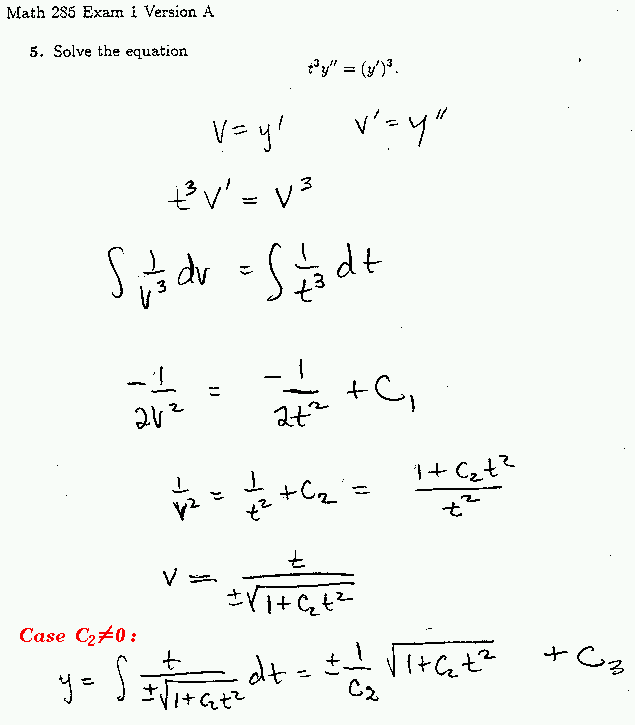 Math 285 Exam 1 Version A
5. Solve the equation
t³y″ = (y′)³.
V = y′ V′ = y″
t³V′ = V³
∫ 1/V³ dv = ∫ 1/t³ dt
-1/2V² = -1/2t² + C₁
1/V² = 1/t² + C₂ = (1 + C₂t²)/t²
V = t/±√(1 + C₂t²)
Case C₂≠0:
y = ∫ t/±√(1 + C₂t²) dt = ± 1/C₂ √(1 + C₂t²) + C₃